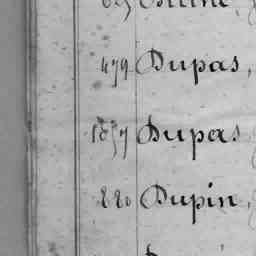 479 Dupas,
1857 Dupas
220 Dupin,